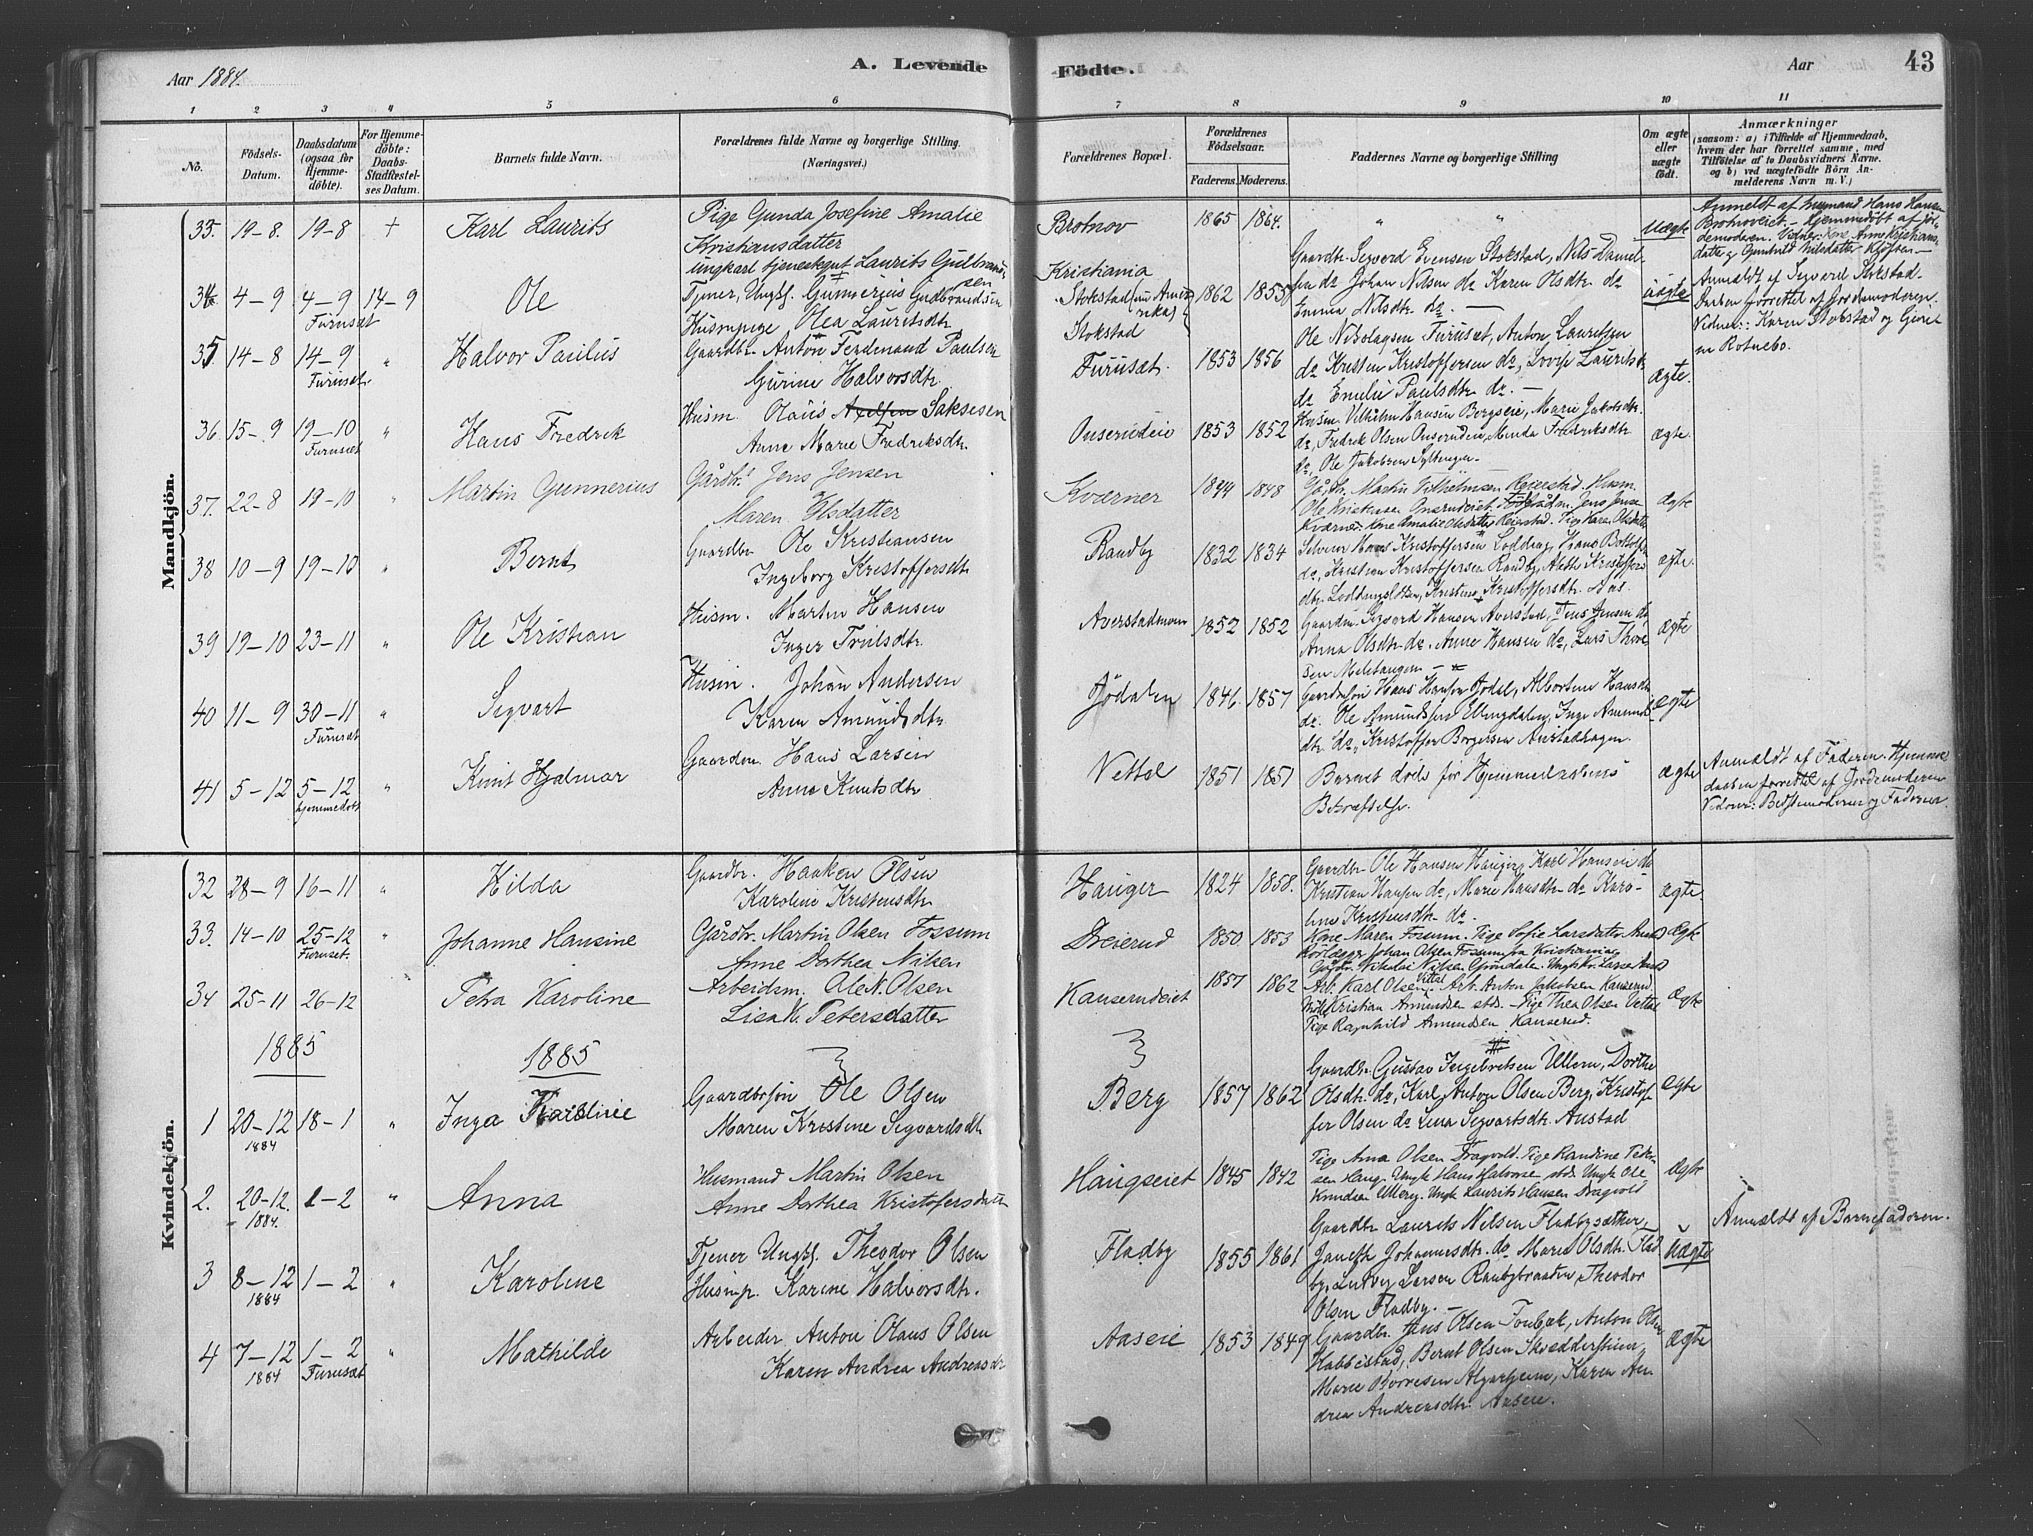 Aar 1884.
A. Levende
Födte.
Aar
43
1 2 3 4 5 6 7 8 9 10 11
No.
Födsels-
Datum.
Daabsdatum
(ogsaa for
Hjemme-
döbte).
For Hjemme-
döbte:
Daabs-
Stadfæstel-
ses Datum.
Barnets fulde Navn.
Forældrenes fulde Navne og borgerlige Stilling.
(Næringsvei.)
Forældrenes Bopæl.
Forældrenes
Födselsaar.
Faderens. Moderens.
Faddernes Navne og borgerlige Stilling
Om ægte
eller
uægte
födt.
Anmærkninger
(saasom: a) i Tilfælde af Hjemmedaab,
hvem der har forrettet samme, med
Tilföielse af to Daabsvidners Navne.
og b) ved uægtefödte Börn An-
melderens Navn m. V.)
Mandkjön.
33. 19-8. 19-8 + Karl Laurits
Pige Gunda Josefine Amalie
Kristiansdatter
ungkarl tjenestegut Laurits Gulbrand-
sen
Brotnov
Kristiania
1865 1864.
" "
Uægte
Anmeldt af Husmand Hans Hansen
Brotnoveiet - Hjemmedöbt af Jor-
demoderen. Vidner: Kone Anne Kristians-
datter og Gunhild Nilsdatter Kløften -
34 4-9 4-9 14-9 Ole
Furusæt
Tjener, Ungk. Gunnerius Gudbrandsen
Huusmpige, Olea Lauritsdtr.
Stokstad (nu Ame-
rika)
Stokstad
1862 1855
Gaardbr. Sigvard Evensen Stokstad, Nils Daniel-
sen do Johan Nilsen do Karen Olsdtr. do
Emma Nilsdtr. do. —
uægte
Anmeldt af Sigvard Stokstad.
Daaben forrettet af Jordemoderen.
Vidner: Karen Stokstad og
35 14-8 14-9 " Halvor Paulus
Furusæt.
Gaardbr. Anton Ferdinand Paulsen
Gurine Halvorsdtr.
Furusæt.
1853 1856
Ole Nikolaysen Furusæt, Anton Lauritsen
do Kristen Kristoffersen do, Lovise Lauritsdt.
do Emilie Paulsdtr. do. —
ægte.
36. 15-9 19-10 " Hans Fredrik
Furusæt
Husm. Olaus Axelsen Saksesen
Anne Marie Fredriksdtr.
Onserudeie
1853 1852
Husm. Vilhelm Hansen Bergseie, Marie Jakobsdtr.
do, Fredrik Olsen Onserudeie, Minda Fredriksdtr.
do, Ole Jakobsen
ægte.
37. 22-8 19-10 " Martin Gunnerius
Gårdbr. Jens Jensen
Maren Olsdatter
Kværner
1844 1848
Gårdbr. Martin Vilhelmsen Reierstad. Husm.
Ole Kristiansen Onserudeiet. Jens Jensen
Kværner. Kone Amalie Olsdatter Reierstad. Pige Karen Olsdatter
ægte
38 10-9 19-10 " Bernt
Gaardbr Ole Kristiansen
Ingeborg Kristoffersdtr
Randby
1832 1834
Hans Kristoffersen
do, Kristian Kristoffersen Randby, Anthe Kristoffers-
dtr. Kristine Kristoffersdtr. Aas.
ægte.
39 19-10 23-11 " Ole Kristian
Husm. Martin Hansen
Inger Trulsdtr.
Averstadmoen
1852 1852
Gaardm. Sigvard Hansen Averstad, Jens Jensen do,
Anna Olsdtr. do. Anne Hansen do, Lars Thore-
sen
ægte
40 11-9 30-11 " Sigvart
Furusæt
Husm. Johan Andersen
Karen Amundsdtr.
Gjödalen
1846. 1857
Gaardm. Hans Hansen Gjödal, Albertine Hansdtr
do. Ole Amundsen Ellingdalen, Inge Amunds-
dtr. do, Kristoffer Borgersen Aurstadhagen.
ægte
41 5-12 5-12 " Knut Hjalmar
hjemmedöbt
Gaardm. Hans Larsen
Anne Knutsdtr
Nettel
1851 1851
Barnet døde før Hjemmedaabens
Bekræftelse.
ægte
Anmeldt af Faderen. Hjemme-
daaben forrettet af Jordemoderen
Vidner: Bestemoderen og Faderen.
Kvindekjön.
32 28-9 16-11 " Hilda
Gaardbr. Haaken Olsen
Karoline Kristensdtr
Hauger
1824 1858.
Gaardbr Ole Hansen Hauger, Karl Hansen do
Kristian Hansen do, Marie Hansdtr. do Karo-
line Kristensdtr. do.
ægte.
33. 14-10 25-12 " Johanne Hansine
Furuset.
Gårdbr. Martin Olsen Fossum
Anne Dorthea Nilsen
Dreierud
1850 1853
Kone Maren Fossum. Pige Sofie Larsdatter
Johan Olsen Fossum fra Kristiania
Gårdbr. Nikolai Nilsen Gjöndalen. Ungk.
Ægte
34 25-11 26-12 Petra Karoline
Arbeidsm. Ole N. Olsen
Lisa K. Petersdatter
Kauserudeiet
1857 1862
Arb. Karl Olsen Vettal. Arb. Anton Jakobsen Kauserud
Kristian Amundsen stds. - Pige Thea Olsen Vettal
Pige Ragnhild Amundsen Kauserud.
Ægte
1885 1885
1 20-12 18-1 " Inga Karoline
1884
Gaardbrsön Ole Olsen
Maren Kristine Sigvardsdtr
Berg
1857 1862
Gaardbr. Gustav Ingebretsen Ullern, Dorthe
Olsdtr. do, Karl Anton Olsen Berg, Kristof-
fer Olsen do Lina Sigvartsdtr. Aurstad
ægte
2. 20-12. 1-2 " Anna
1884.
Husmand Martin Olsen
Anne Dorthea Kristofersdatter
Haugseiet
1845 1842
Pige Anna Olsen Dragvold. Pige Randine Peter-
sen Haug. Ungk. Hans Halvorsen stds. Ungk Ole
Knudsen Ulleru. Ungk Laurits Hansen Dragvold
Ægte
3 8-12 1-2 " Karoline
1884
Tjener Ungk. Theodor Olsen
Husmp. Karine Halvorsdtr.
Fladby
1855 1861
Gaardbr. Laurits Nelsen Fladbysæther,
Janette Johannesdtr. do Maria Olsdtr. Flad-
by, Ludvig Larsen Randbybraaten, Theodor
Olsen Fladby. —
Uægte
Anmældt af Barnefaderen.
4 7-12 1-2 " Mathilde
1884 Furusæt
Arbeider Anton Olaus Olsen
Karen Andrea Andreasdr
Aaseie
1853 1849
Gaardbr. Jens Olsen Tonbæk, Anton Olsen
Habbestad, Bernt Olsen Skrædderstuen,
Marie Algarheim, Karen An-
drea Andreasdtr. Aaseie.
ægte